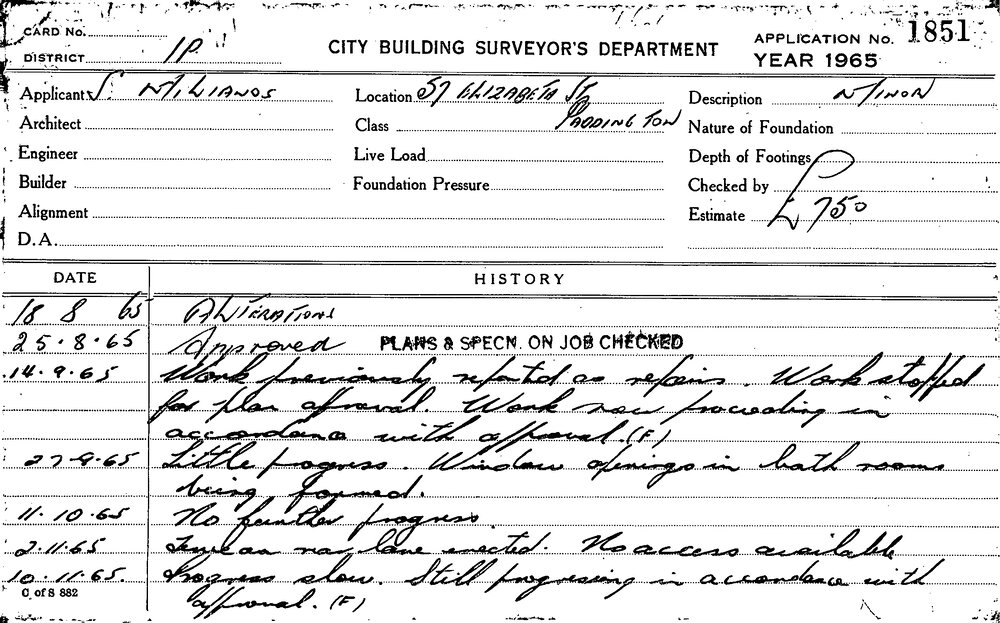 CARD No.
DISTRICT 1P
CITY BUILDING SURVEYOR'S DEPARTMENT
APPLICATION No. 1851
YEAR 1965
Applicant S. MILIANOS
Location 57 ELIZABETH ST.
PADDINGTON
Description MINOR
Architect
Class
Nature of Foundation
Engineer
Live Load
Depth of Footings
Builder
Foundation Pressure
Checked by
Alignment
Estimate £750
D.A.
DATE HISTORY
18 8 65 ALTERATIONS
25.8.65 Approved PLANS & SPECN. ON JOB CHECKED
14.9.65 Work previously reported as repairs. Work stopped
for plan approval. Work now proceeding in
accordance with approval. (F)
27-9-65 Little progress. Window openings in bath rooms
being formed.
11.10.65 No further progress.
2.11.65 Fence on rear lane erected. No access available
10.11.65. Progress slow. Still progressing in accordance with
approval. (F)
C of S 882